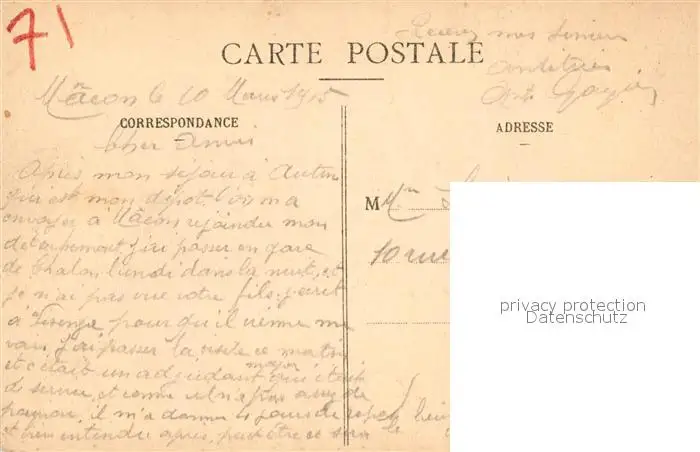 71
Recevez mes
CARTE POSTALE
Mâcon le 10 Mars 1915
CORRESPONDANCE
ADRESSE
Cher Amis
Après mon séjour à Autun
qui est mon dépot l'on m'a
envoyer à Mâcon rejoindre mon
détachement J'ai passer en gare
de Chalon lundi dans la nuit, et
je n'ai pas vue votre fils j'ecrit
à pour qu'il vienne me
voir J'ai passer la visite ce matin
et c'était un adjudant major qui était
de service, et comme il n'a pas
il m'a donner 4 jours de repos
et bien intendu après, peut être ce sera
M
10 rue
privacy protection
Datenschutz